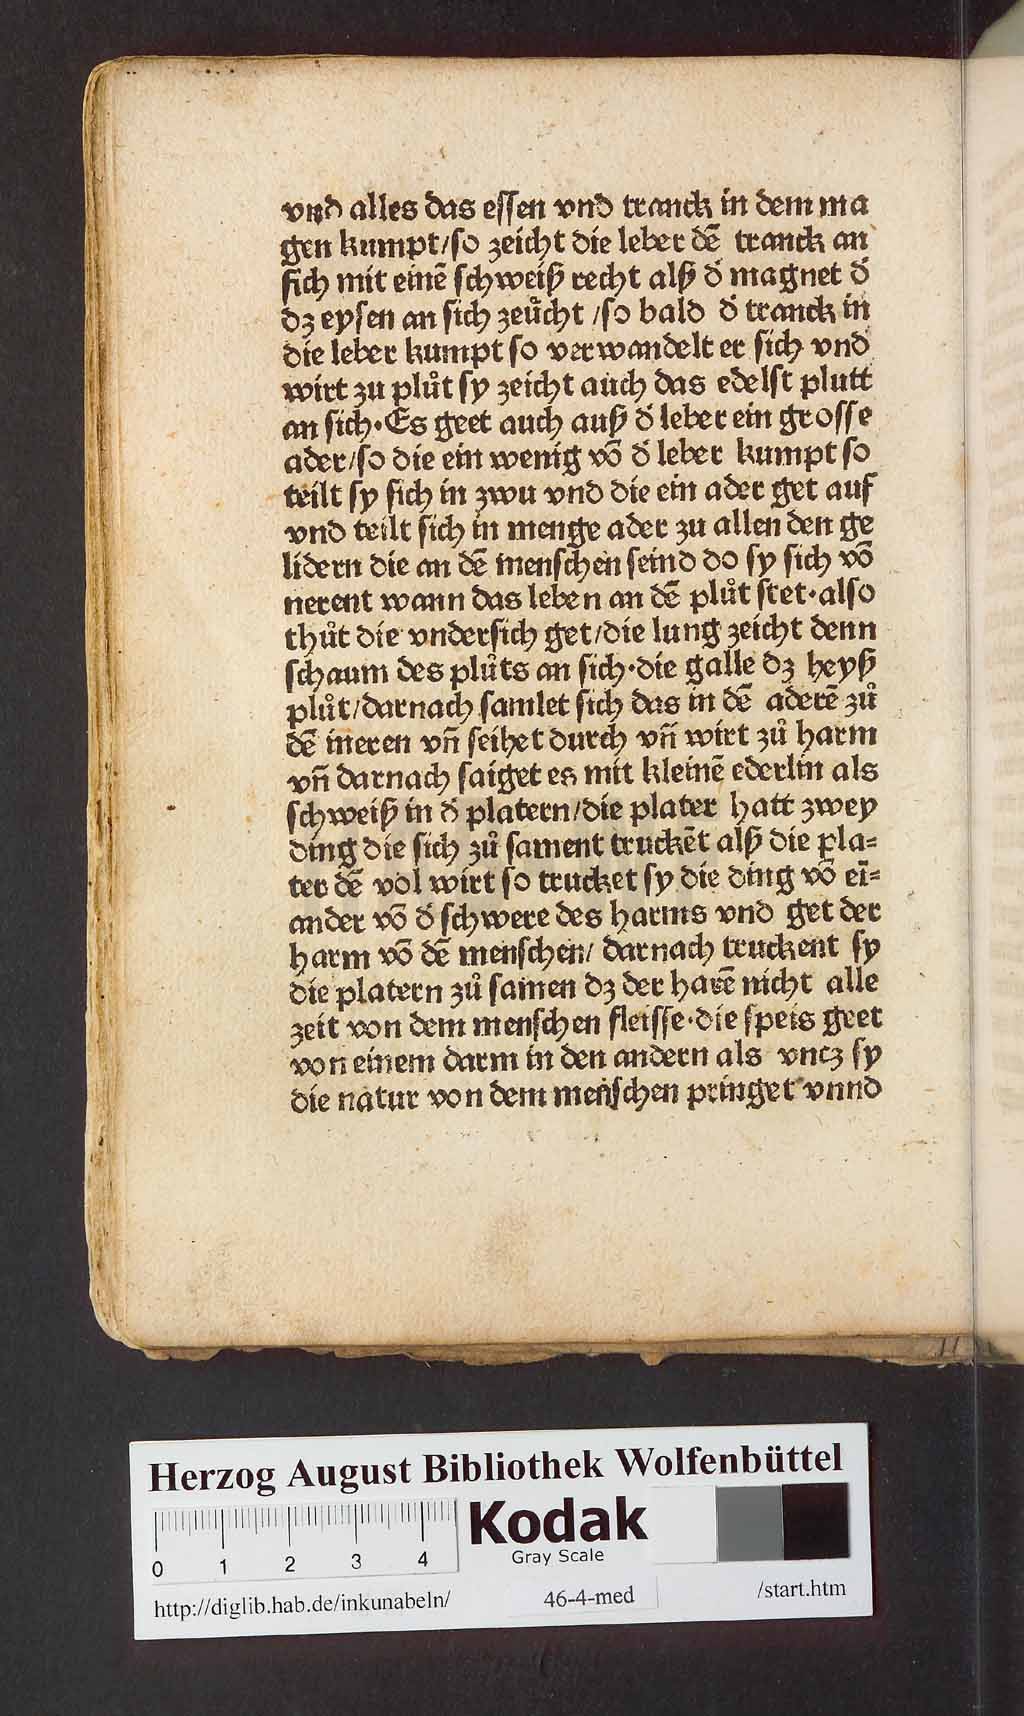 vnd alles das essen vnd tranck in dem ma
gen kumpt/so zeicht die leber dē tranck an
sich mit einē schweiß recht alß d̓ magnet d̓
dz eysen an sich zeücht /so bald d̓ tranck in
die leber kumpt so verwandelt er sich vnd
wirt zu plůt sy zeicht auch das edelst plutt
an sich·Es geet auch auß d̓ leber ein grosse
ader/so die ein wenig vō d̓ leber kumpt so
teilt sy sich in zwu vnd die ein ader get auf
vnd teilt sich in menge ader zu allen den ge
lidern die an dē menschen seind do sy sich vō
nerent wann das leben an dē plůt stet·also
thůt die vndersich get/die lung zeicht denn
schaum des plůts an sich·die galle dz heyß
plůt/darnach samlet sich das in dē aderē zů
dē ineren vn̄ seihet durch vn̄ wirt zů harm
vn̄ darnach saiget es mit kleinē ederlin als
schweiß in d̓ platern/die plater hatt zwey
ding die sich zů sament truckēt alß die pla=
ter dē vol wirt so trucket sy die ding vō eī=
ander vō d̓ schwere des harms vnd get der
harm vō dē menschen/ darnach truckent sy
die platern zů samen dz der harē nicht alle
zeit von dem menschen fleisse·die speis geet
von einem darm in den andern als vntz sy
die natur von dem menschen pringet vnnd
Herzog August Bibliothek Wolfenbüttel
0 1 2 3 4
Kodak
Gray Scale
http://diglib.hab.de/inkunabeln/ 46-4-med /start.htm